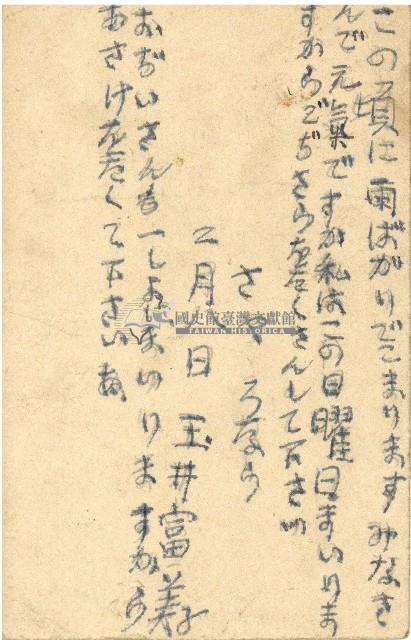 この頃は雨ばがりでこまりますみなさ
んで元氣ですか私はこの日曜日まいりま
すからごぢさうをたくさんして下さい
さようなら
二月八日 玉井富美子
おぢいさんも一しよにまいりますから
おさけをたくて下さいね
國史館臺灣文獻館
TAIWAN HISTORICA